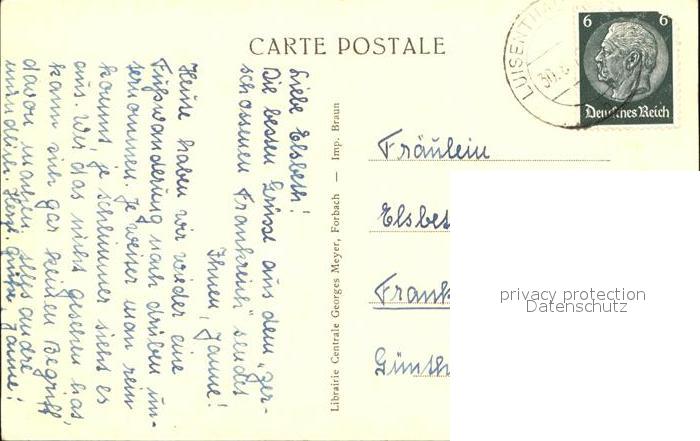 CARTE POSTALE
LUISENTHAL
30.8.
6 6
Deutsches Reich
Liebe Elsbeth!
Die besten Grüsse aus dem „zer-
schossenen Frankreich" sendet
Ihnen, Janne!
Heute haben wir wieder eine
Fußwanderung nach drüben un-
ternommen. Je weiter man rein
kommt, je schlimmer sieht es
aus. Wer das nicht gesehen hat,
kann sich gar keinen Begriff
davon machen. Alles andre
mündlich. Herzl. Grüße, Janne!
Librairie Centrale Georges Meyer, Forbach — Imp. Braun
Fräulein
Elsbet
Frank
Günth
privacy protection
Datenschutz